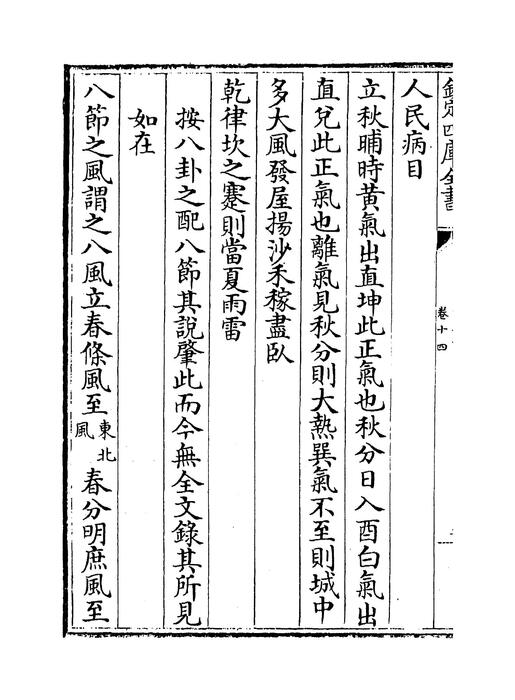 欽定四庫全書
卷十四
人民病目
立秋晡時黃氣出直坤此正氣也秋分日入酉白氣出
直兌此正氣也離氣見秋分則大熱巽氣不至則城中
多大風發屋揚沙禾稼盡臥
乾律坎之蹇則當夏雨雷
按八卦之配八節其說肇此而今無全文錄其所見
如在
八節之風謂之八風立春條風至東北風春分明庶風至